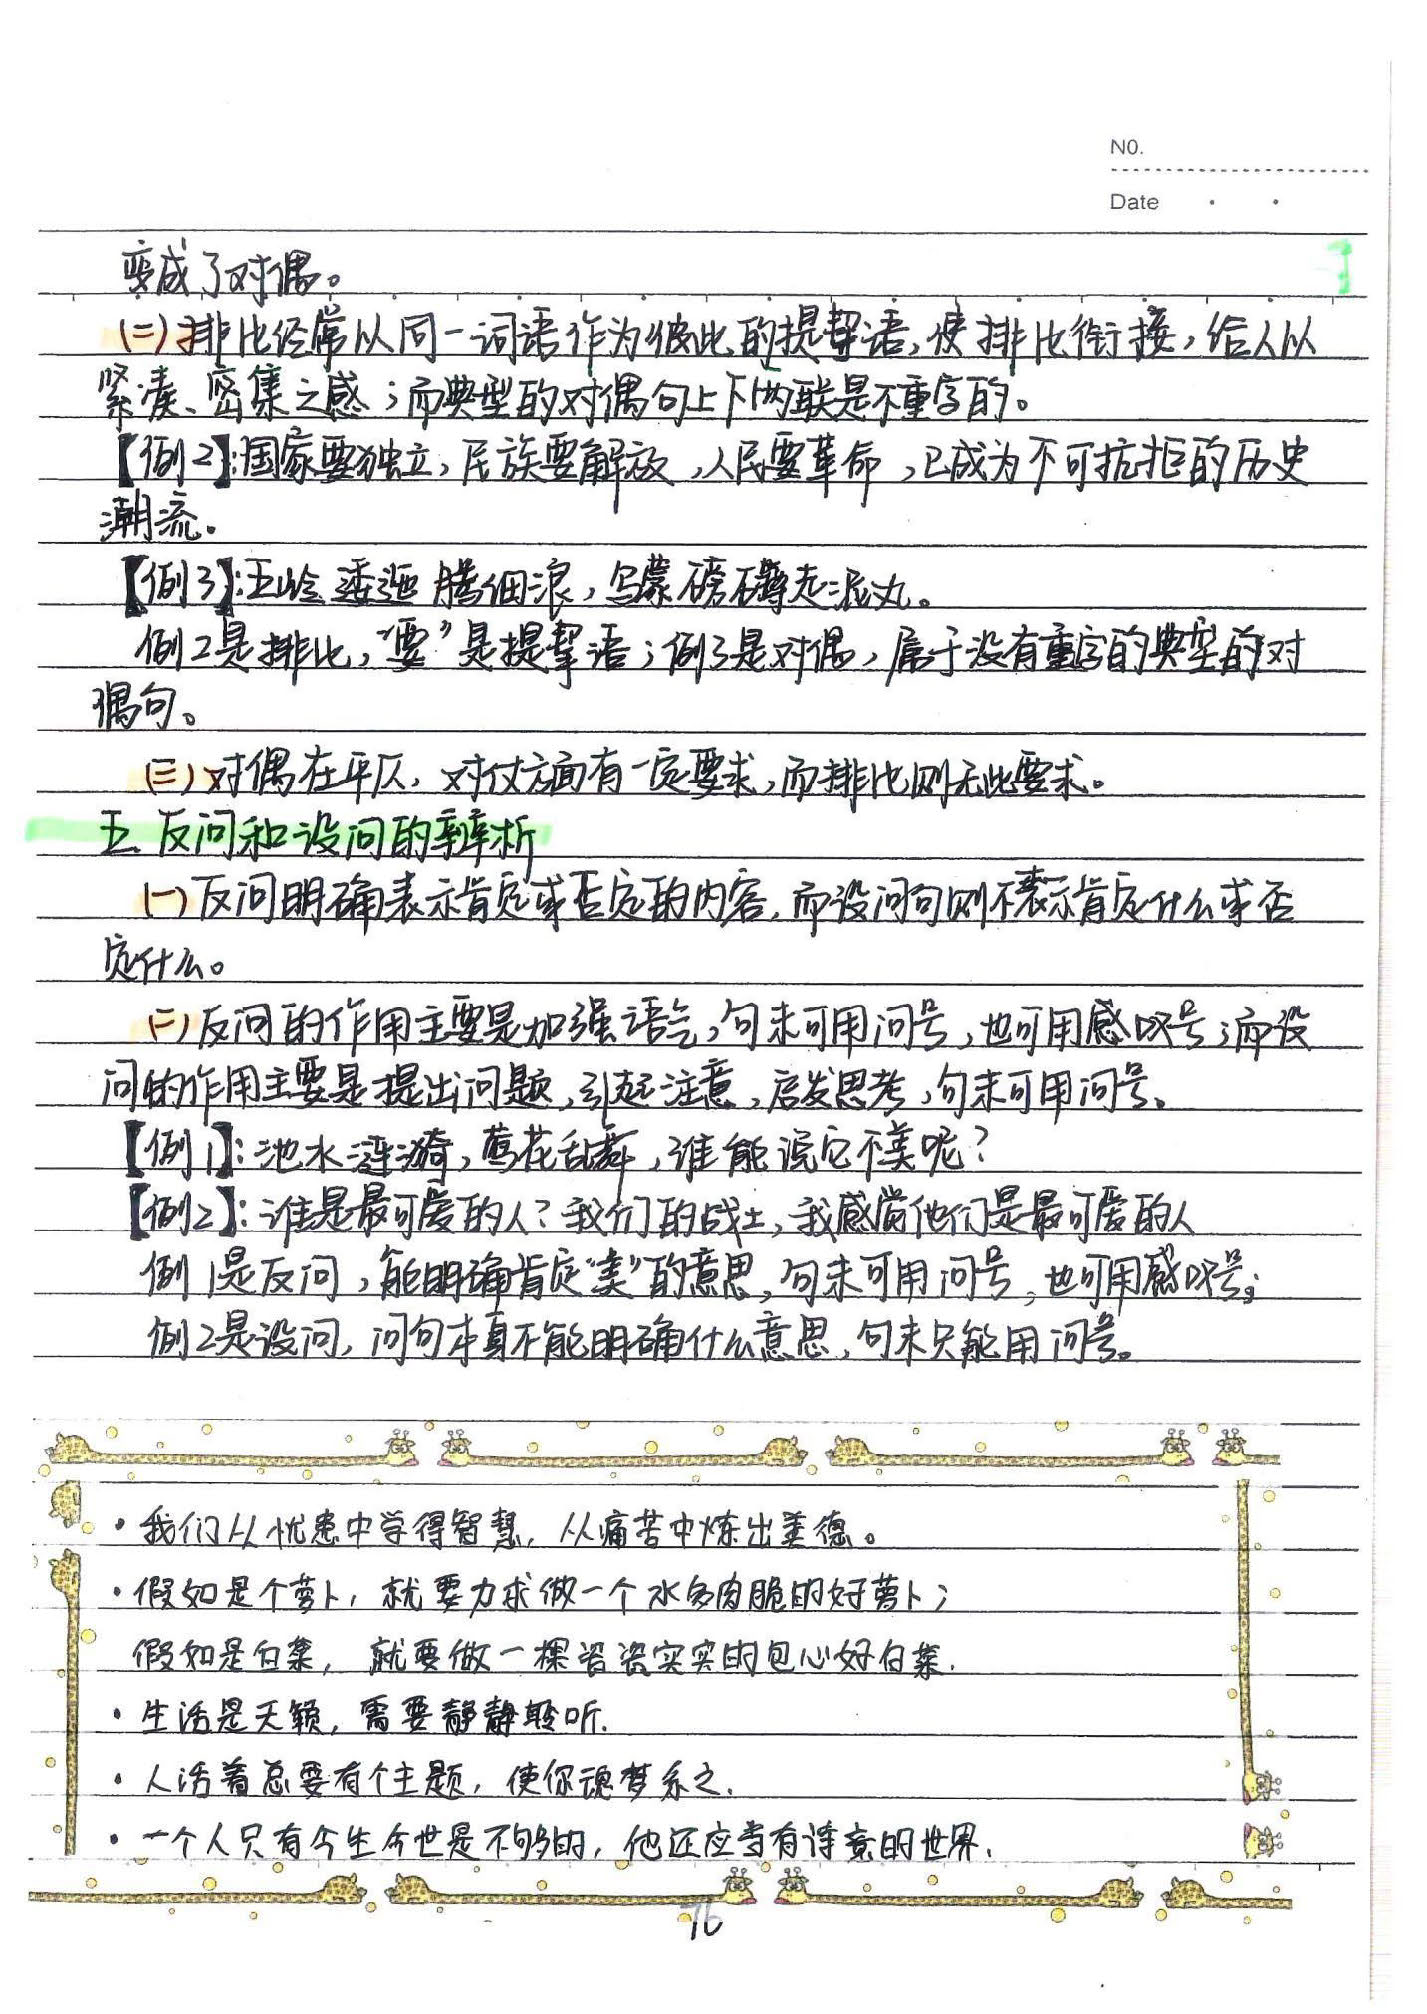 NO.
Date
变成了对偶。
(二)排比经常以同一词语作为彼此的提挈语,使排比衔接,给人以
紧凑、密集之感;而典型的对偶句上下两联是不重字的。
【例2】:国家要独立,民族要解放,人民要革命,已成为不可抗拒的历史
潮流。
【例3】:五岭逶迤腾细浪,乌蒙磅礴走泥丸。
例2是排比,“要”是提挈语;例3是对偶,属于没有重字的典型的对
偶句。
(三)对偶在平仄、对仗方面有一定要求,而排比则无此要求。
五.反问和设问的辨析
(一)反问明确表示肯定或否定的内容,而设问句则不表示肯定什么或否
定什么。
(二)反问的作用主要是加强语气,句末可用问号,也可用感叹号;而设
问的作用主要是提出问题,引起注意,启发思考,句末可用问号。
【例1】:池水涟漪,莺花乱舞,谁能说它不美呢?
【例2】:谁是最可爱的人?我们的战士,我感觉他们是最可爱的人
例1是反问,能明确肯定“美”的意思,句末可用问号,也可用感叹号;
例2是设问,问句本身不能明确什么意思,句末只能用问号。
·我们从忧患中学得智慧,从痛苦中炼出美德。
·假如是个萝卜,就要力求做一个水多肉脆的好萝卜;
假如是白菜,就要做一棵瓷瓷实实的包心好白菜.
·生活是天籁,需要静静聆听.
·人活着总要有个主题,使你魂梦系之.
·一个人只有今生今世是不够的,他还应当有诗意的世界.
76